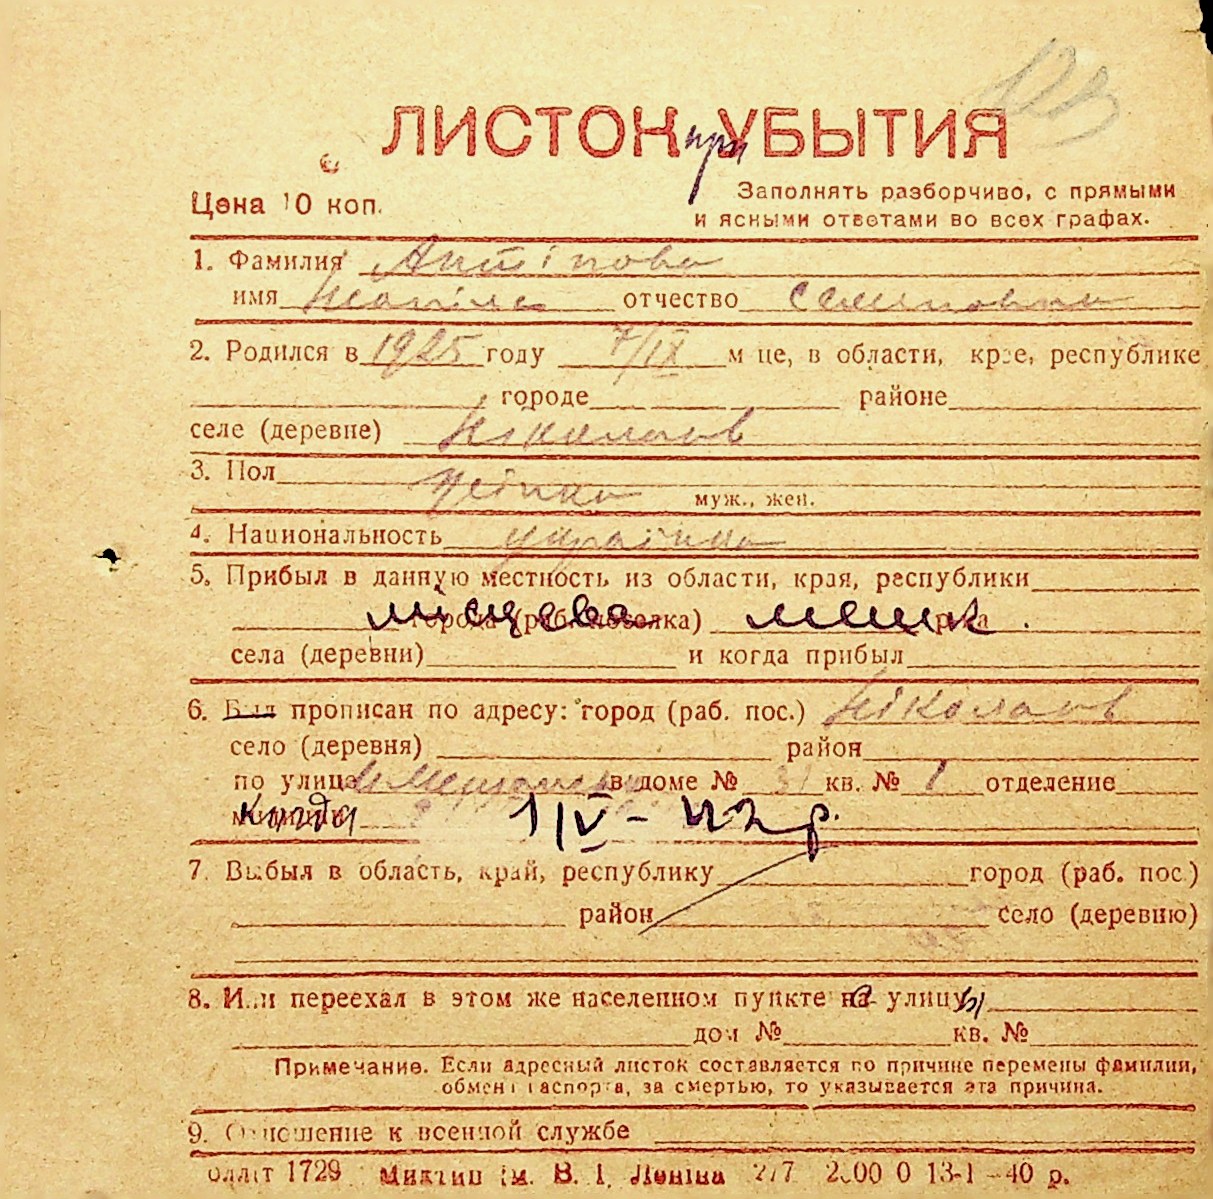 123
ЛИСТОК при УБЫТИЯ
Цена 10 коп.
Заполнять разборчиво, с прямыми
и ясными ответами во всех графах.
1. Фамилия Антіпова
имя отчество Семеновна
2. Родился в 1925 году 7/IX м це, в области, крае, республике
городе районе
селе (деревне) Ніколаов
3. Пол жінка муж., жен.
4. Национальность українка
5. Прибыл в данную местность из области, края, республики
місцева города (раб. поселка) мешк.
села (деревни) и когда прибыл
6. Был прописан по адресу: город (раб. пос.) Ніколаов
село (деревня) район
по улице в доме № 31 кв. № 1 отделение
когда 1/IV - 42 р.
7. Выбыл в область, край, республику город (раб. пос.)
район село (деревню)
8. Или переехал в этом же населенном пункте на улицу
дом № кв. №
Примечание. Если адресный листок составляется по причине перемены фамилии,
обмена паспорта, за смертью, то указывается эта причина.
9. Отношение к военной службе
оллит 1729 им. В. І. Леніна 13-1-40 р.